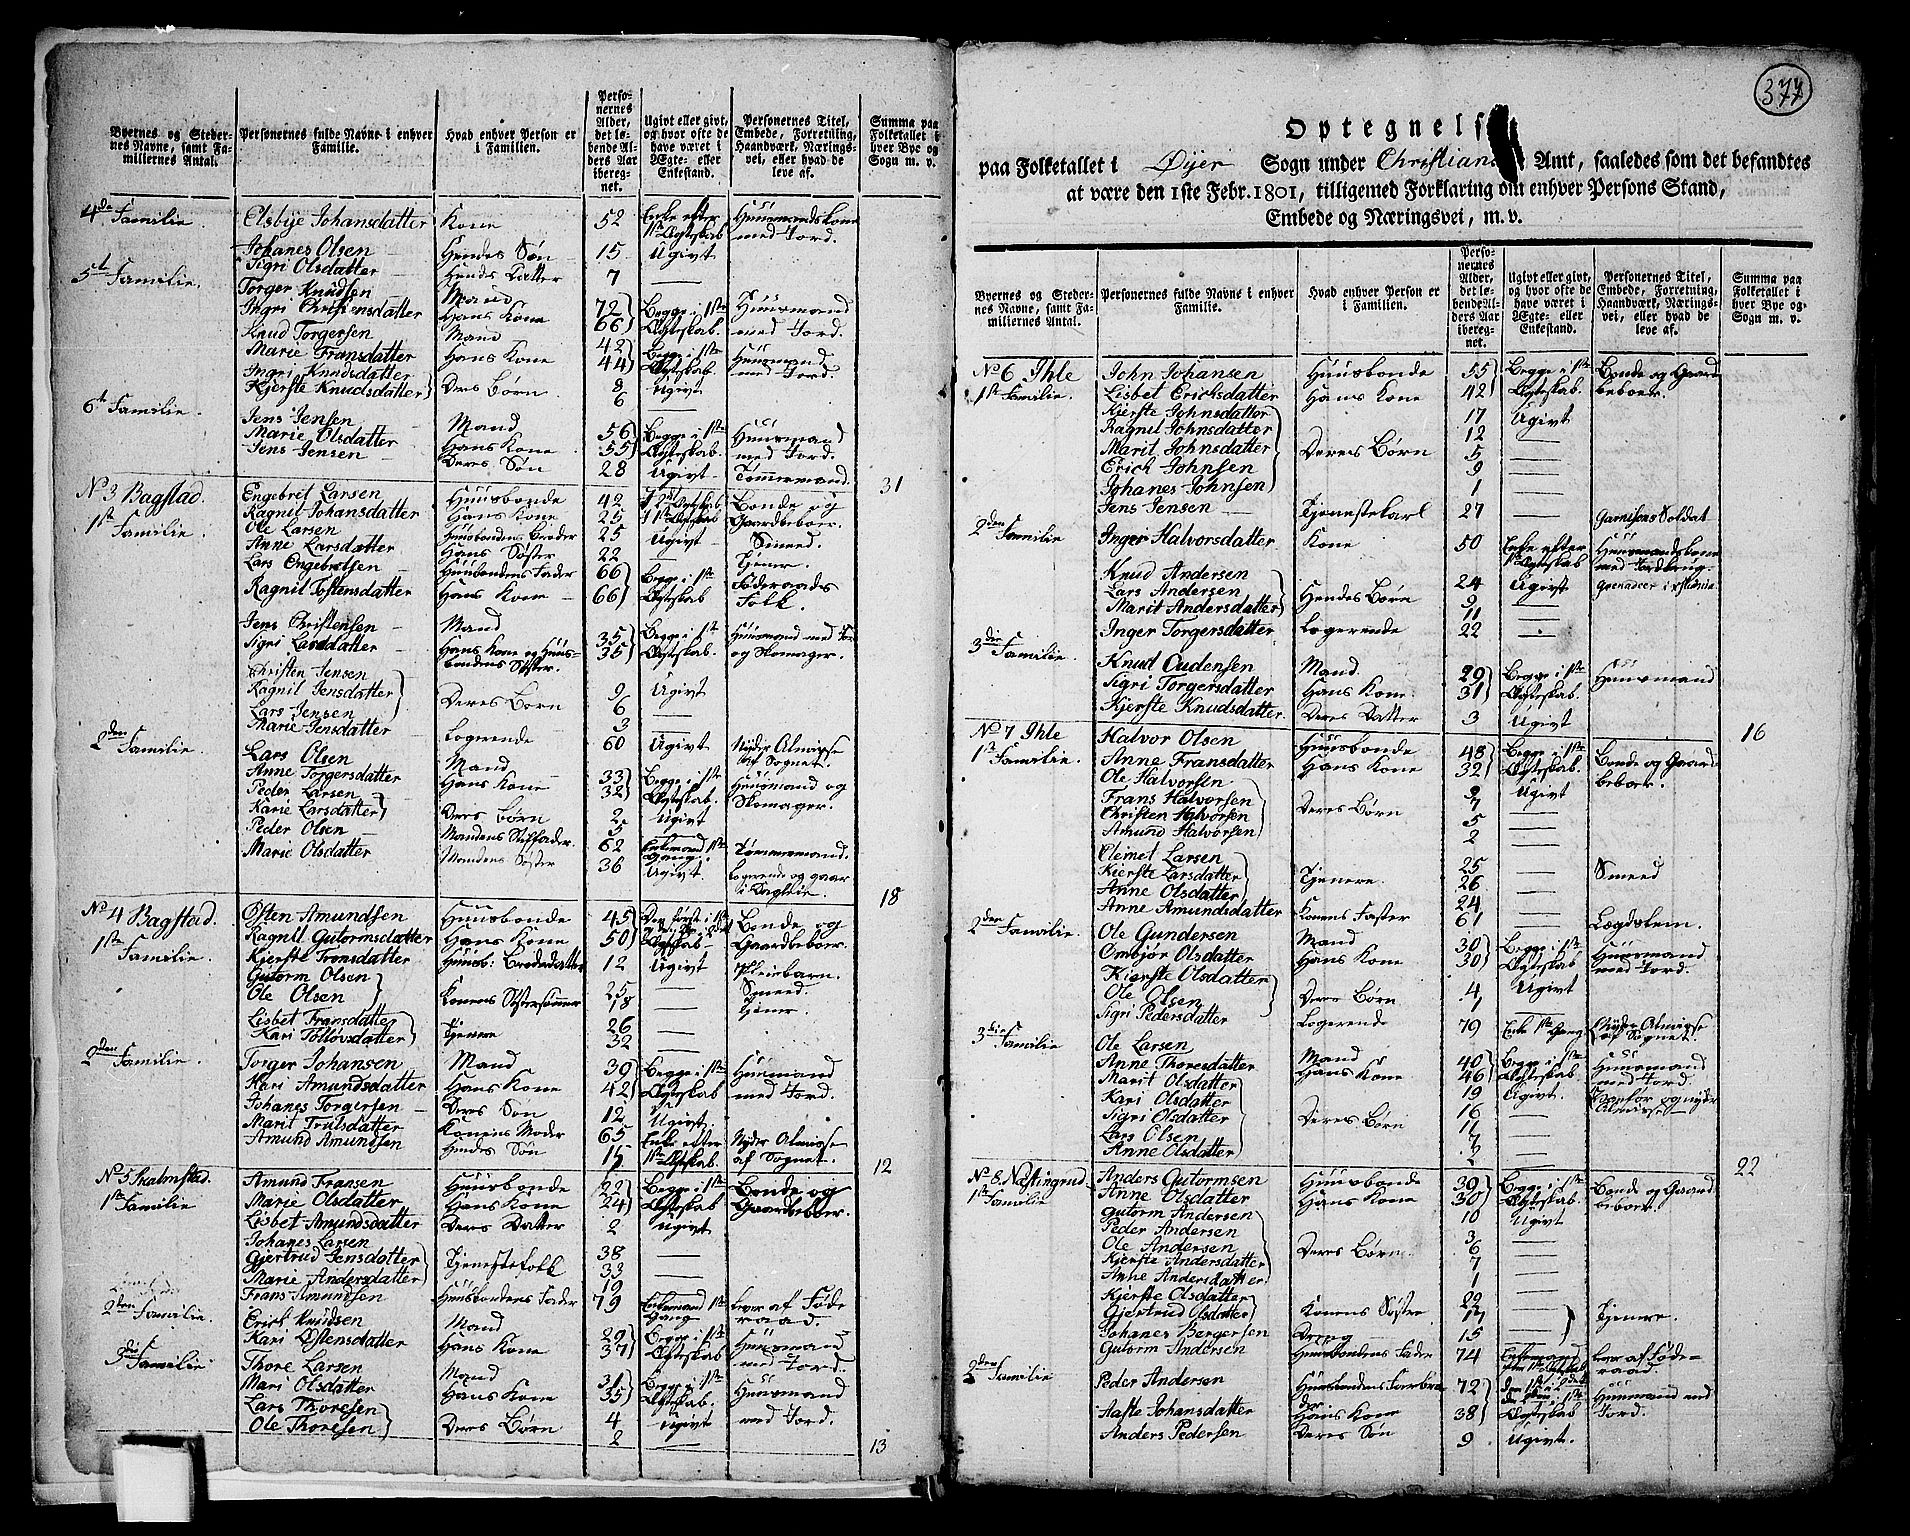 Byernes og Stedernes Navne, samt Familiernes Antal.
Personernes fulde Navne i enhver Familie.
Hvad enhver Person er i Familien.
Personernes Alder, det løbende Alders Aar iberegnet.
Ugivt eller givt, og hvor ofte de have været i Ægte- eller Enkestand.
Personernes Titel, Embede, Forretning, Haandværk, Næringsvei, eller hvad de leve af.
Summa paa Folketallet i hver Bye og Sogn m. v.
4de Familie Elsbye Johansdatter Kone 52 Enke efter 1ste Ægteskab Huusmandskone med Jord.
Johanes Olsen Hendes Søn 15 Ugivt
Sigri Olsdatter Hendes Datter 7 —
5t Familie. Torger Knudsen Mand 72 Begge i 1ste Ægteskab. Huusmand med Jord.
Ingri Christensdatter Hans Kone 66
Knud Torgersen Mand 42 Begge i 1ste Ægteskab. Huusmand med Jord.
Marie Fransdatter Hans Kone 44
Ingri Knudsdatter Deres Børn 8 Ugivt
Kjerste Knudsdatter 6 —
6t Familie. Jens Jensen Mand 56 Begge i 1ste Ægteskab. Huusmand med Jord.
Marie Olsdatter Hans Kone 55
Jens Jensen Deres Søn 28 Ugivt Tømmermand. 31
No 3 Bagstad. Engebret Larsen Huusbonde 42 Bonde og Gaardbeboer.
1ste Familie. Ragnil Johansdatter Hans Kone 25
Ole Larsen Huusbondens Broder 25 Ugivt Smeed.
Anne Larsdatter Hans Søster 22 — Tjener.
Lars Engebretsen Huusbondens Fader 66 Begge i 1ste Ægteskab Føderaads Folk.
Ragnil Tostensdatter Hans Kone 66
Jens Christensen Mand 35 Begge i 1ste Ægteskab. Huusmand med Jord og Skomager.
Sigri Larsdatter Hans Kone og Huusbondens Søster. 35
Christen Jensen Deres Børn 9 Ugivt
Ragnil Jensdatter 6 —
Lars Jensen 3 —
Marie Jensdatter Logerende 60 Ugivt Nyder Almisse af Sognet.
2den Familie. Lars Olsen Mand 33 Begge i 1ste Ægteskab. Huusmand og Skomager.
Anne Torgersdatter Hans Kone 32
Peder Larsen Deres Børn 2 Ugivt
Karie Larsdatter 5
Peder Olsen Mandens Stiffader. 62 Enkemand 1ste Gang. Tømmermand.
Marie Olsdatter Mandens Søster 36 Ugivt Logerende og gaar i Dagleie. 18
No 4 Bagstad. Østen Amundsen Huusbonde 45 Bonde og Gaardbeboer.
1ste Familie. Ragnil Gutormsdatter Hans Kone 50
Kjerste Tronsdatter Huusb: Broderdatter 12 Ugivt Pleiebarn.
Gutorm Olsen Konens Søstersønner 25 — Smeed.
Ole Olsen 18 — Tjener.
Lisbet Fransdatter Tjenere 26 —
Kari Tollovsdatter 32 —
2den Familie. Torger Johansen Mand 39 Begge i 1ste Ægteskab Huusmand med Jord.
Kari Amundsdatter Hans Kone 42
Johanes Torgersen Deres Søn 12 Ugivt.
Marit Trulsdatter Konens Moder 65 Enke efter 1ste Ægteskab. Nyder Almisse af Sognet.
Amund Amundsen Hendes Søn 15 12
No 5 Skalmstad. Amund Fransen Huusbonde 22 Begge i 1ste Ægteskab Bonde og Gaardbeboer.
1ste Familie Marie Olsdatter Hans Kone 24
Lisbet Amundsdatter Deres Datter 2 Ugivt
Johanes Larsen Tjenestefolk 38 —
Gjertrud Jensdatter 33 —
Marie Andersdatter 19
Frans Amundsen Huusbondens Fader 79 Enkemand 1ste Gang Lever af Føderaad.
2den Familie. Erick Knudsen Mand 29 Begge i 1ste Ægteskab Huusmand med Jord.
Kari Østensdatter Hans Kone 37
3die Familie Thore Larsen Mand 31 Begge i 1ste Ægteskab Huusmand med Jord.
Mari Olsdatter Hans Kone 35
Lars Thoresen Deres Børn 4 Ugivt
Ole Thoresen 2 — 13
377
Optegnels
paa Folketallet i Øyer Sogn under Christians Amt, saaledes som det befandtes
at være den 1ste Febr. 1801, tilligemed Forklaring om enhver Persons Stand,
Embede og Næringsvei, m. v.
Byernes og Stedernes Navne, samt Familiernes Antal.
Personernes fulde Navne i enhver Familie.
Hvad enhver Person er i Familien.
Personernes Alder, det løbende Alders Aar iberegnet.
Ugivt eller givt, og hvor ofte de have været i Ægte- eller Enkestand.
Personernes Titel, Embede, Forretning, Haandværk, Næringsvei, eller hvad de leve af.
Summa paa Folketallet i hver Bye og Sogn m. v.
No 6 Ihle John Johansen Huusbonde 55 Begge i 1ste Ægteskab. Bonde og Gaardbeboer.
1ste Familie. Lisbet Ericksdatter Hans Kone 42
Kjerste Johnsdatter Deres Børn 17 Ugivt
Ragnil Johnsdatter 12 —
Marit Johnsdatter 5
Erich Johnsen 9 —
Johanes Johnsen 1 —
Jens Jensen Tjenestekarl 27 — Garnisons Soldat
2den Familie Inger Halvorsdatter Kone 50 Enke efter 1ste Ægteskab Huusmandskone med Jordbrug.
Knud Andersen Hendes Børn 24 Ugivt Grenadeer i Xstiania
Lars Andersen 9 —
Marit Andersdatter 11 —
Inger Torgersdatter Logerende 22 —
3die Familie. Knud Oudensen Mand 29 Begge i 1ste Ægteskab. Huusmand
Sigri Torgersdatter Hans Kone 31
Kjerste Knudsdatter Deres Datter 3 Ugivt 16
No 7 Ihle Halvor Olsen Huusbonde 48 Begge i 1ste Ægteskab. Bonde og Gaardbeboer.
1st Familie. Anne Fransdatter Hans Kone 32
Ole Halvorsen Deres Børn 9 Ugivt
Frans Halvorsen 7 —
Christen Halvorsen 5 —
Amund Halvorsen 2 —
Clemet Larsen Tjenere. 25 — Smeed
Kjerste Larsdatter 26 —
Anne Olsdatter 24 —
Anne Amundsdatter Konens Faster 61 — Lægdslem.
2den Familie. Ole Gundersen Mand 30 Begge i 1ste Ægteskab. Huusmand med Jord.
Ombjør Olsdatter Hans Kone 30
Kjerste Olsdatter Deres Børn 4 Ugivt
Ole Olsen 1 —
Sigri Pedersdatter Logerende 79 Enke 1ste Gang Nyder Almisse af Sognet.
3die Familie Ole Larsen Mand 40 Begge i 1ste Ægteskab Huusmand med Jord.
Anne Thoresdatter Hans Kone 46
Marit Olsdatter Deres Børn 19 Ugivt. og nyder Almisse
Kari Olsdatter 16 —
Sigri Olsdatter 11 —
Lars Olsen 7 —
Anne Olsdatter 2 — 22
No 8. Nastingrud Anders Gutormsen Huusbonde 39 Begge i 1ste Ægteskab Bonde og Gaardbeboer.
1ste Familie Anne Olsdatter Hans Kone 30
Gutorm Andersen Deres Børn 10 Ugivt
Peder Andersen 3 —
Ole Andersen 6 —
Kjerste Andersdatter 7 —
Anne Andersdatter 1 —
Kjerste Olsdatter Konens Søstre 22 — Tjenere.
Gjertrud Olsdatter —
Johanes Børgersen Dreng 15 —
Gutorm Andersen Huusbondens Fader 74 Enkemand Lever af Føderaad.
2den Familie Peder Andersen Huusbondens Farbroder 72 Huusmand med Jord.
Aaste Johansdatter Hans Kone 38 Ægteskab
Anders Pedersen Deres Søn 9 Ugivt.